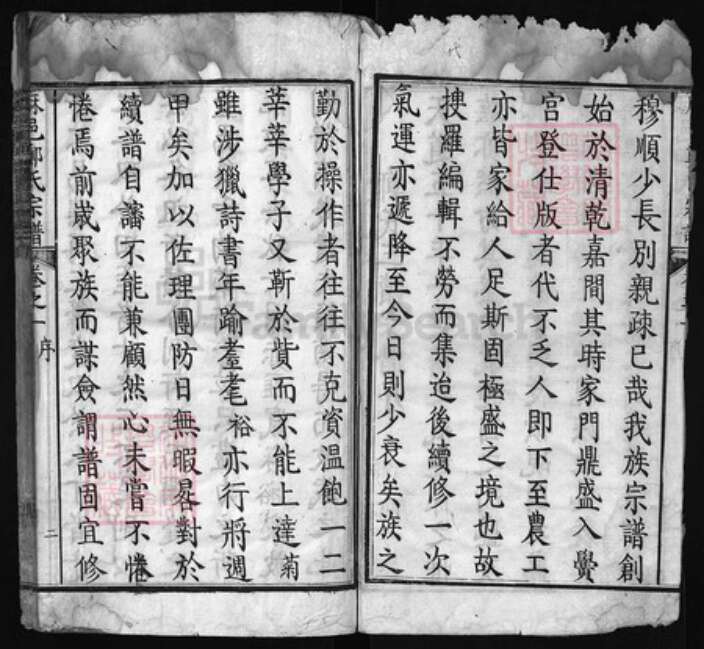 穆順少長別親疎已哉我族宗譜創
始於清乾嘉間其時家門鼎盛入黌
宮登仕版者代不乏人即下至農工
亦皆家給人足斯固極盛之境也故
搜羅編輯不勞而集迨後續修一次
氣運亦遞降至今日則少衰矣族之
勤於操作者往往不克資温飽一二
莘莘學子又靳於貲而不能上達菊
雖涉獵詩書年踰耋耄裕亦行將週
甲矣加以佐理團防日無暇晷對於
續譜自審不能兼顧然心未嘗不惓
惓焉前歲聚族而謀僉謂譜固宜修
氏宗譜 卷之一 序 二